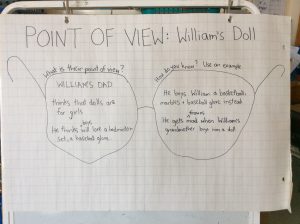 POINT OF VIEW: William's Doll
What is their point of view?
WILLIAM'S DAD
thinks that dolls are
for girls
boys
He thinks will love a badminton
set, a baseball glove
How do you know? Use an example
He buys William a basketball,
marbles + baseball glove instead
frowns
He gets mad when William's
grandmother buys him a doll